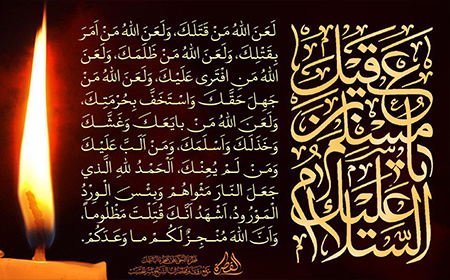 السلام عليك
يا مسلم بن
عقيل
لَعَنَ اللهُ مَنْ قَتَلَكَ، وَلَعَنَ اللهُ مَنْ اَمَرَ
بِقَتْلِكَ، وَلَعَنَ اللهُ مَنْ ظَلَمَكَ، وَلَعَنَ
اللهُ مَنِ افْتَرى عَلَيْكَ، وَلَعَنَ اللهُ مَنْ
جَهِلَ حَقَّكَ وَاسْتَخَفَّ بِحُرْمَتِكَ،
وَلَعَنَ اللهُ مَنْ بايَعَكَ وَغَشَّكَ
وَخَذَلَكَ وَاَسْلَمَكَ، وَمَنْ اَلَبَّ عَلَيْكَ
وَمَنْ لَمْ يُعِنْكَ، اَلْحَمْدُ للهِ الَّذي
جَعَلَ النّارَ مَثْواهُمْ وَبِئْسَ الْوِرْدُ
الْمَوْرُودُ، اَشْهَدُ اَنَّكَ قُتِلْتَ مَظْلُوماً،
وَاَنَّ اللهَ مُنْجِزٌ لَكُمْ ما وَعَدَكُمْ.